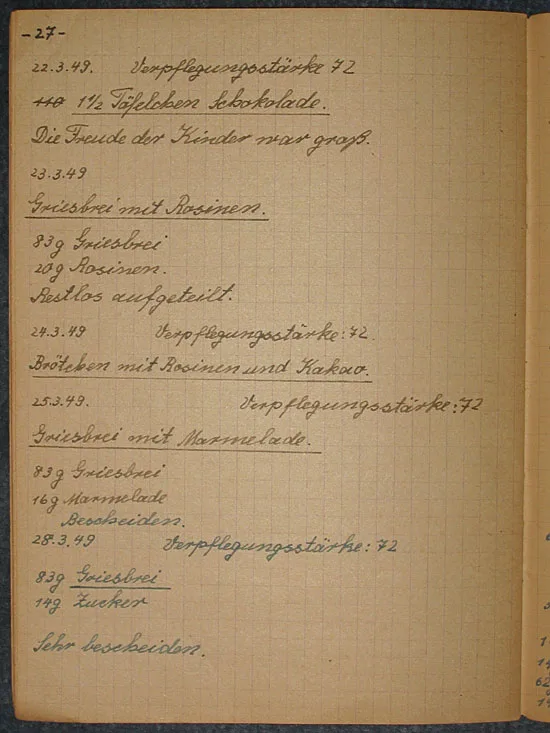 -27-
22.3.49. Verpflegungsstärke 72
110 1 1/2 Täfelchen Schokolade.
Die Freude der Kinder war groß.
23.3.49
Griesbrei mit Rosinen.
83g Griesbrei
20g Rosinen.
Restlos aufgeteilt.
24.3.49 Verpflegungsstärke: 72.
Brötchen mit Rosinen und Kakao.
25.3.49. Verpflegungsstärke: 72
Griesbrei mit Marmelade.
83g Griesbrei
16g Marmelade
Bescheiden.
28.3.49 Verpflegungsstärke: 72
83g Griesbrei
14g Zucker
Sehr bescheiden.